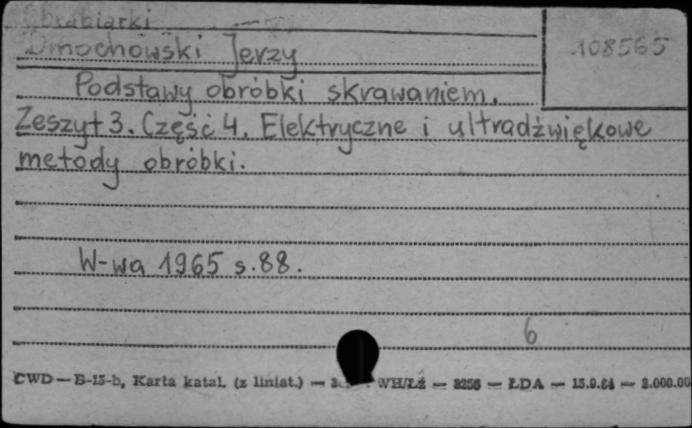 Obrabiarki
108565
Dmochowski Jerzy
Podstawy obróbki skrawaniem.
Zeszyt 3. Część 4. Elektryczne i ultradźwiękowe
metody obróbki.
W-wa 1965 s. 88.
6
CWD — B-15-b, Karta katal. (z liniat.) — WH/Łź — 3256 — ŁDA — 15.9.64 — 3.000.00